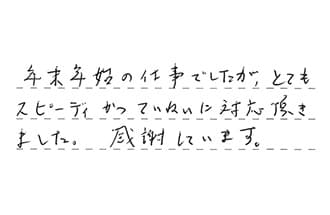 年末年始の仕事でしたが、とても
スピーディかつていねいに対応頂き
ました。 感謝しています。